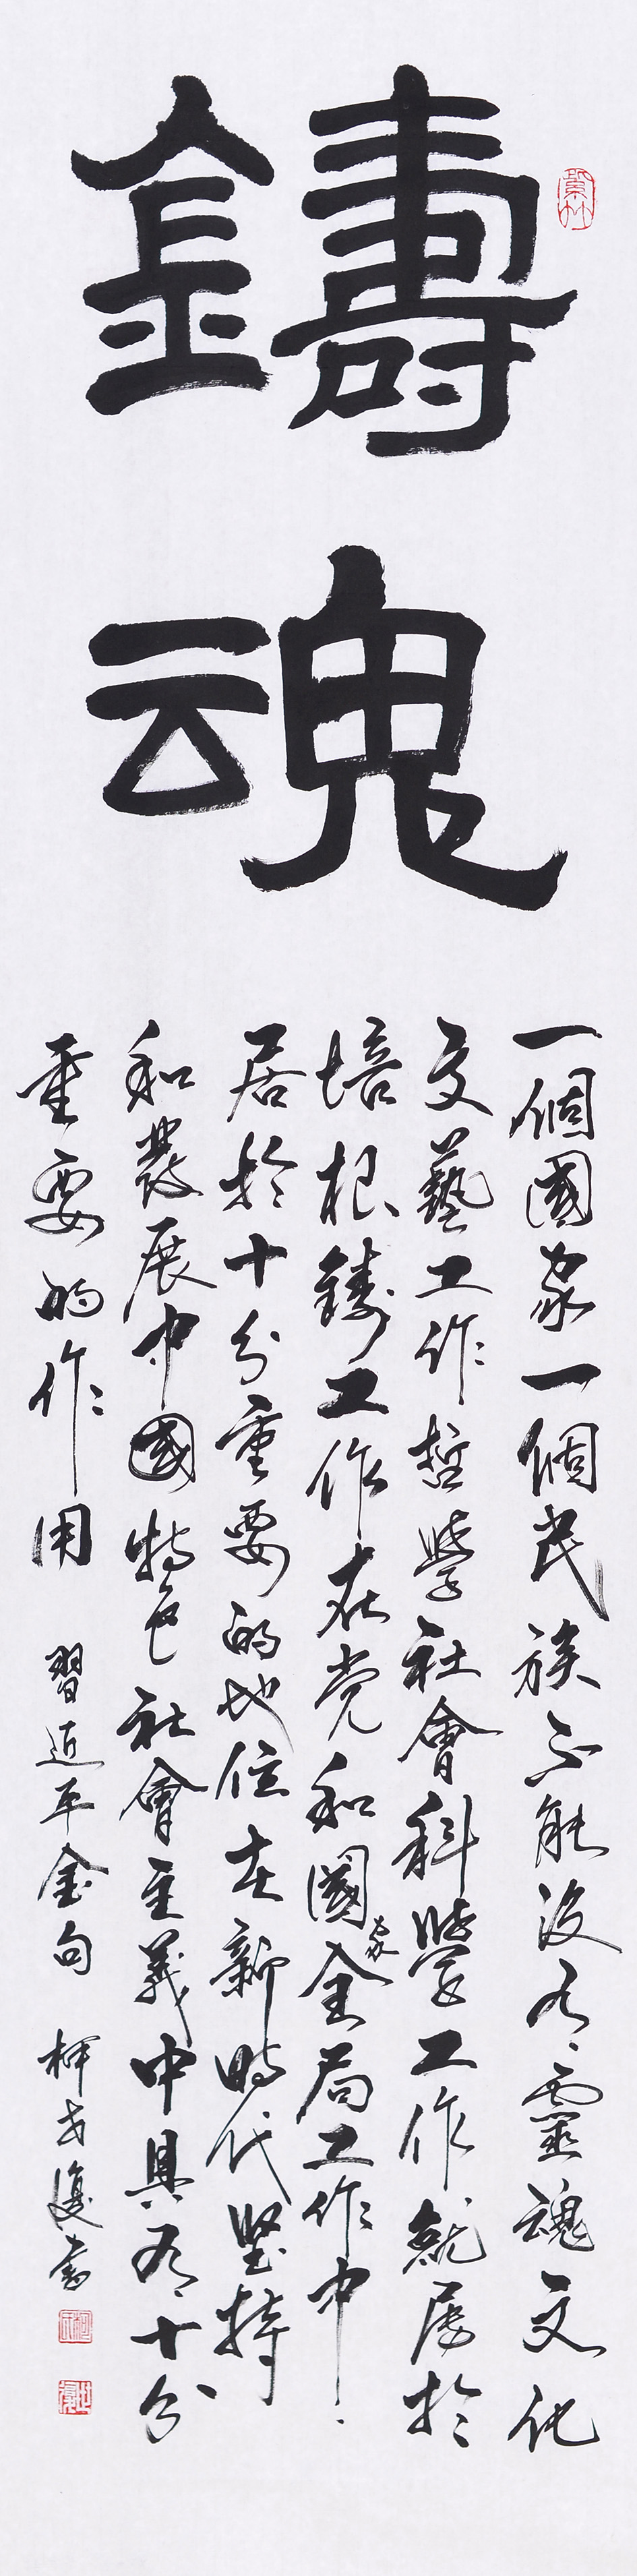 鑄
魂
一個國家一個民族不能沒有靈魂文化
文藝工作哲學社會科學工作就屬於
培根鑄工作在党和國家全局工作中
居於十分重要的地位在新時代堅持
和發展中國特色社會主義中具有十分
重要的作用
習近平金句
柯世復書